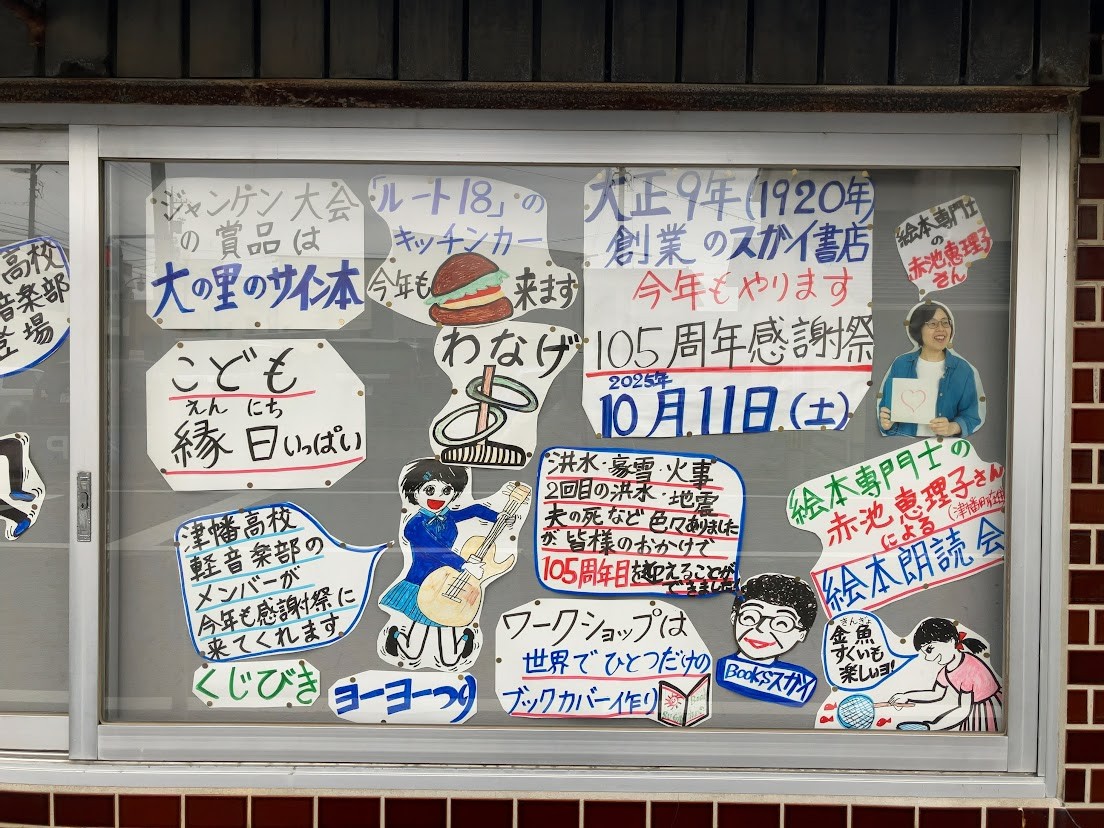 高校
音楽部
登場
ジャンケン大会
の賞品は
大の里のサイン本
「ルート18」の
キッチンカー
今年も 来ます
大正9年(1920年)
創業のスガイ書店
今年もやります
105周年感謝祭
2025年
10月11日(土)
絵本専門士
の
赤池恵理子
さん
こども
えん にち
縁日いっぱい
わなげ
洪水・豪雪・火事
2回目の洪水・地震
夫の死など色々ありました
が皆様のおかげで
105周年目を迎えることが
できました
絵本専門士の
赤池恵理子さん
(津幡町在住)
による
絵本朗読会
津幡高校
軽音楽部の
メンバーが
今年も感謝祭に
来てくれます
くじびき
ヨーヨーつり
ワークショップは
世界でひとつだけの
ブックカバー作り
BOOKSスガイ
きんぎょ
金魚
すくいも
楽しいヨ!